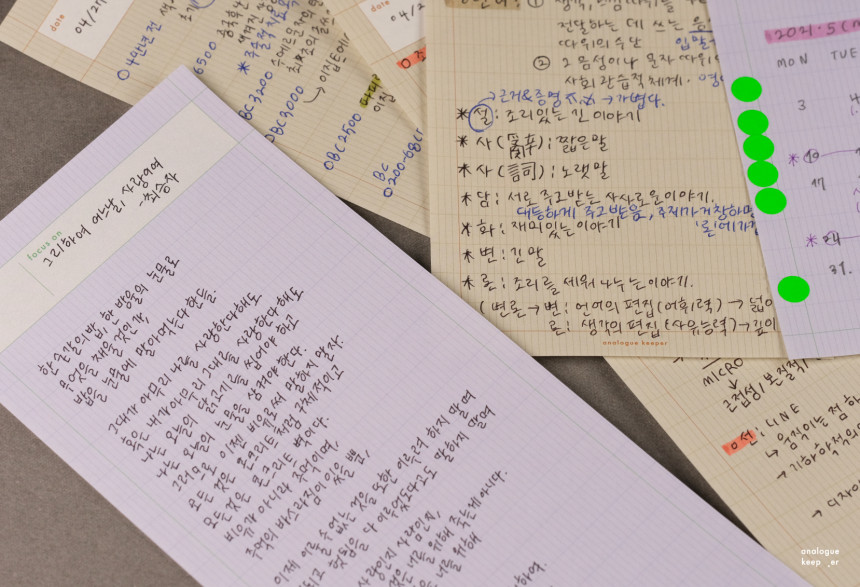 date
04/27
○ 4만년전
6500
BC3200
BC3000
→ 이집트에
○BC2500 파피루
이집
BC
○200-68C
date
04/2
전달하는 데 쓰는 음
따위의 수단 입말
② 음성이나 문자 따위의
사회 관습적 체계.
→ 근거&증명 → 가볍다.
* 설: 조리있는 긴 이야기
* 사(辭): 짧은말
* 사(詞): 노랫말
* 담: 서로 주고받는 사사로운이야기.
대등하게 주고받음, 주제가거창하면
* 화: 재미있는 이야기
* 변: 긴 말
* 론: 조리를 세워 나누는이야기.
(변론 → 변: 언어의 편집(어휘력) → 넓이
론: 생각의 편집(사유능력)→깊이
analogue keeper
2021.5
MON TUE
3
* 10
17
* 24
31.
focus on
그리하여 어느날, 사랑이여
-최승자
한 숟갈의 밥, 한 방울의 눈물로
무엇을 채울 것인가,
밥을 눈물에 말아먹는다한들.
그대가 아무리 나를 사랑한다해도
혹은 내가 아무리 그대를 사랑한다해도
나는 오늘의 닭고기를 씹어야 하고
나는 오늘의 눈물을 삼켜야 한다.
그러므로 이젠 비유로써 말하지 말자.
모든 것은 콘크리트처럼 구체적이고
모든 것은 콘크리트 벽이다.
비유가 아니라 주먹이며,
주먹의 바스라짐이 있을 뿐,
이제 이룰 수 없는 것을 또한 이루려 하지 말며
헛됨을 다 이루었다고도 말하지 말며
사랑인지 사람인지,
너를 위해 죽는게 아니다.
너를 위해
MICRO
↓
근접성, 본질적,
○선: LINE
↳ 움직이는 점
→ 기하학적의
→ 디자이
analogue
keep_er